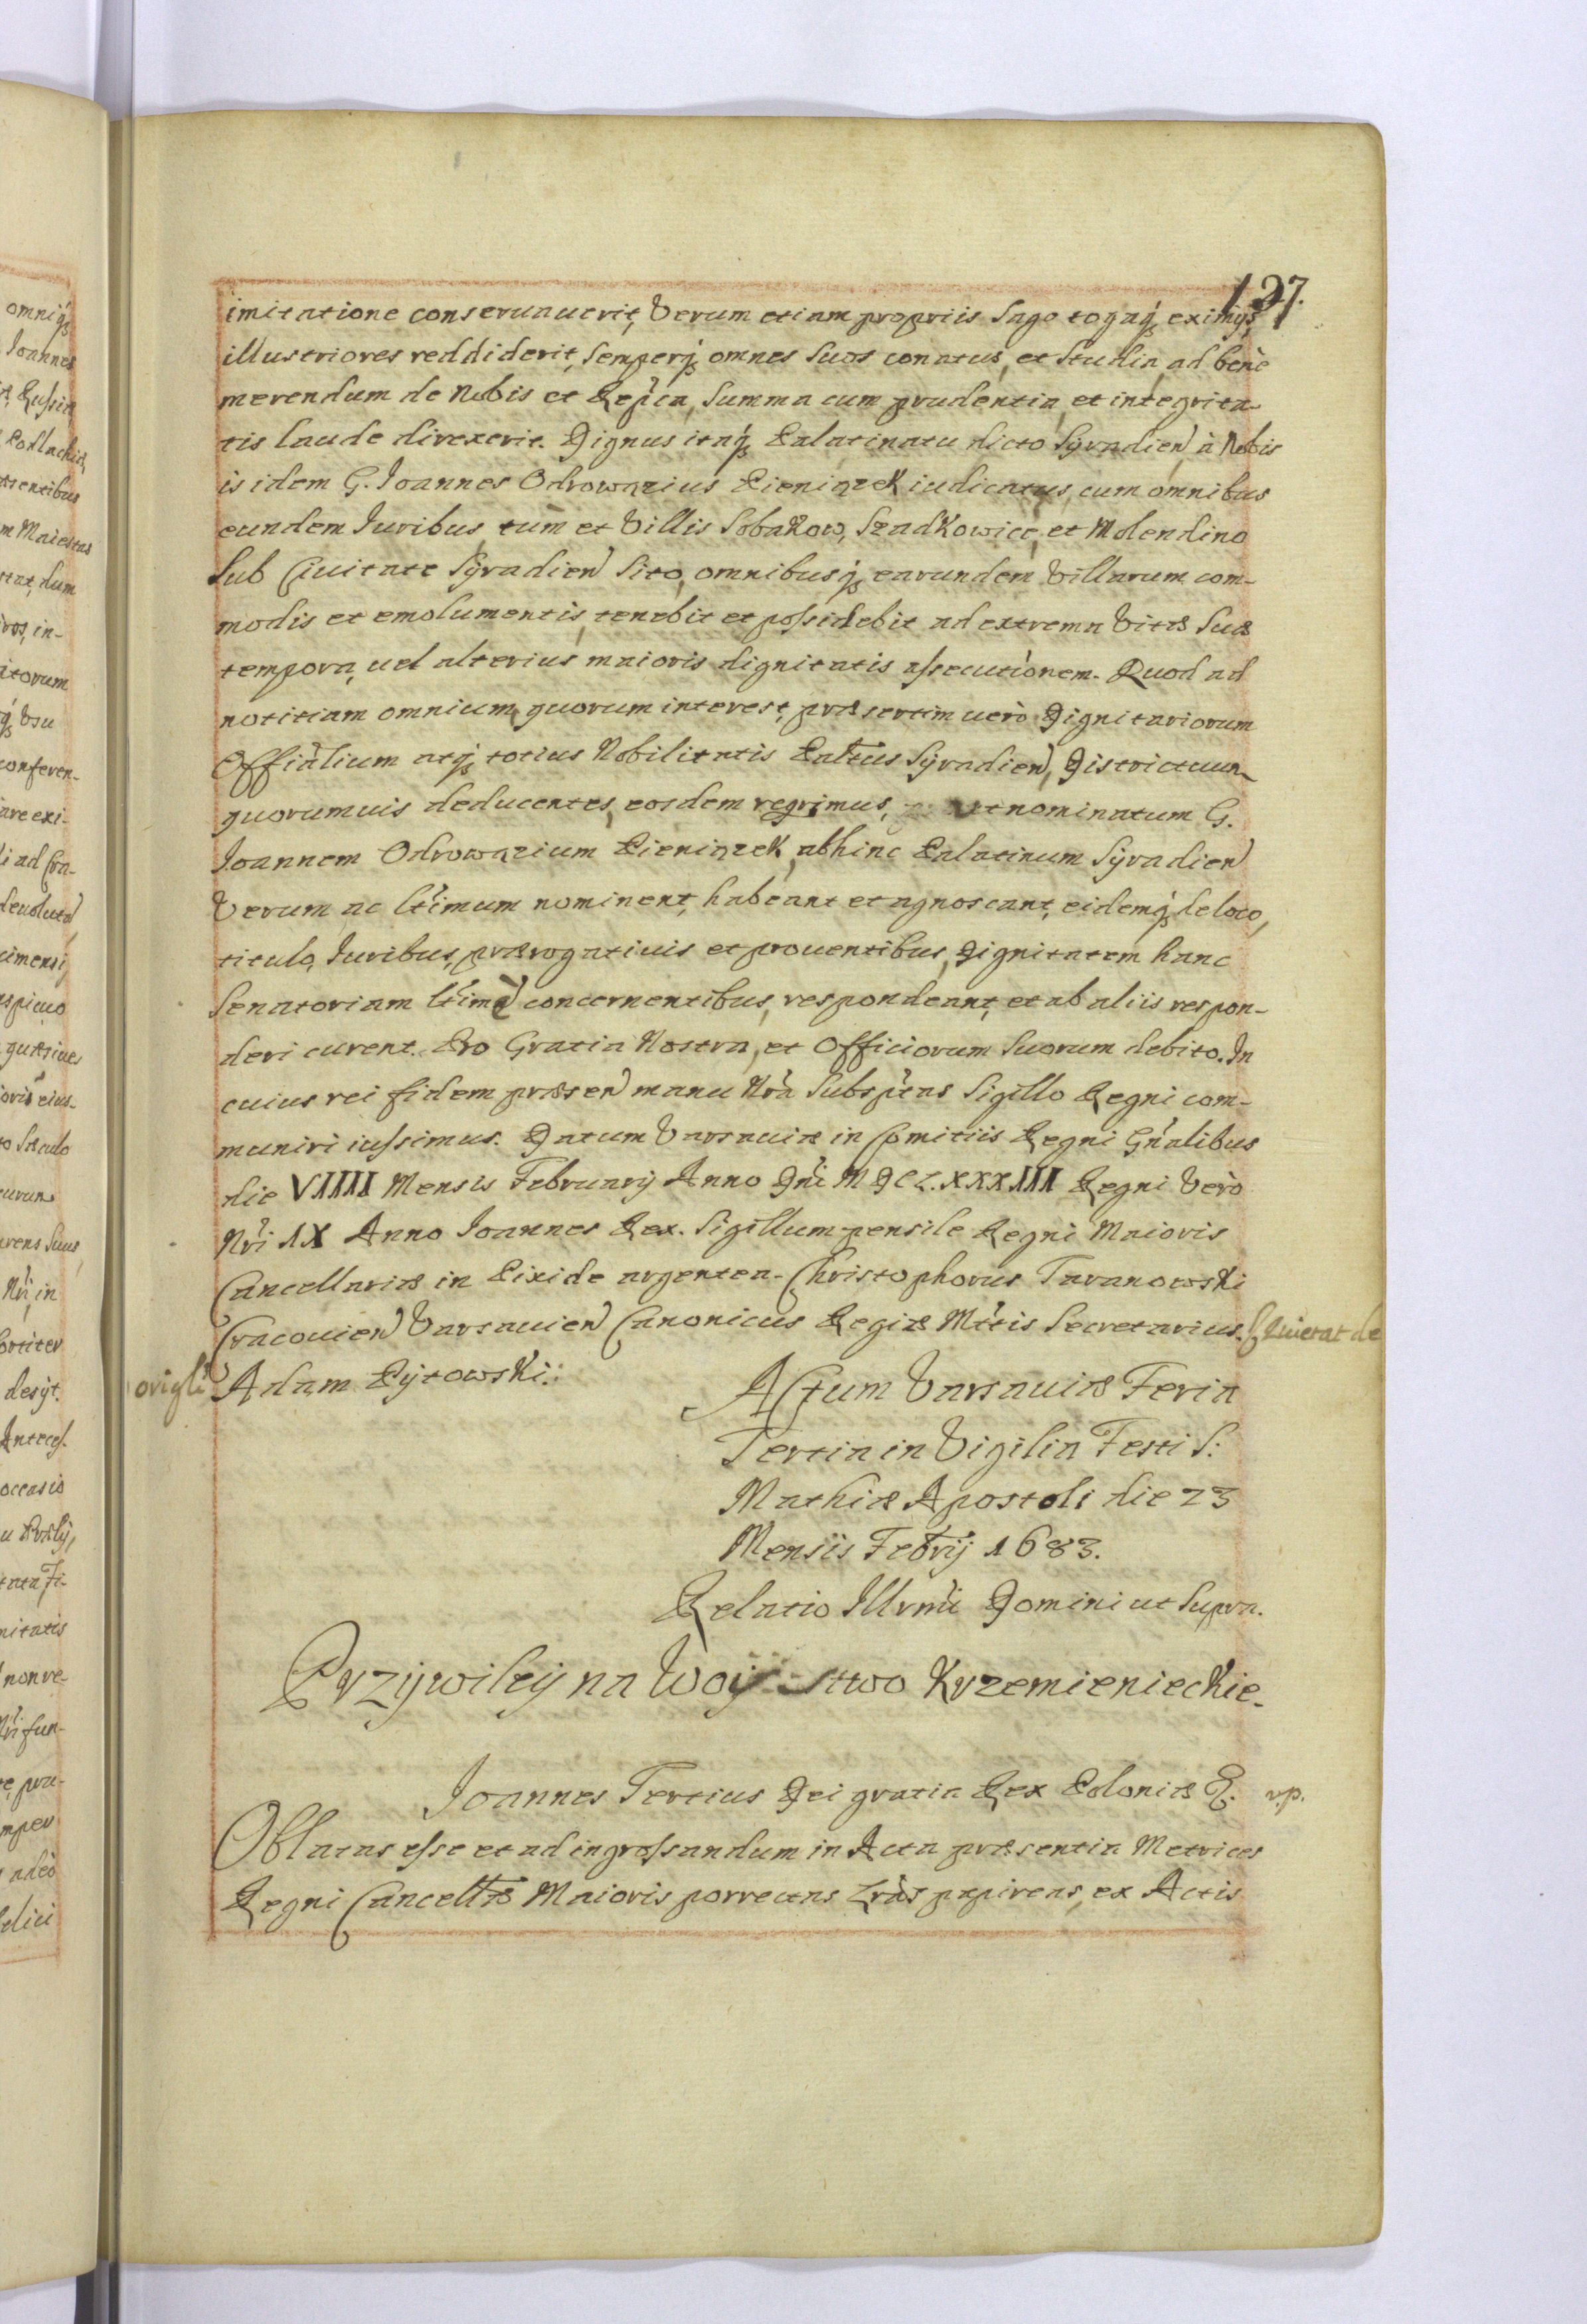 197.
imitatione conseruauerit, Verum etiam propriis Sago togaq; eximijs
illustriores reddiderit, Semperq; omnes Suos conatus, et Studia, ad benè
merendum de Nobis et Repca, Summa cum prudentia et integrita-
tis laude direxerit. Dignus itaq; Palatinatu dicto Syradien à Nobis
is idem G. Joannes Odrowązius Pieniązek iudicatus, cum omnibus
eundem Juribus, tum et Villis Sobakow, Szadkowice, et Molendino
Sub Ciuitate Syradien Sito, omnibusq; earundem Villarum com-
modis et emolumentis, tenebit et possidebit ad extrema Vitæ Suæ
tempora, uel alterius maioris dignitatis assecutionem. Quod ad
notitiam omnium, quorum interest, præsertim uerò Dignitariorum
Officialium atq; totius Nobilitatis Paltus Syradien, Districtuum
quorumuis deducentes, eosdem reqrimus, nominatum G.
Joannem Odrowązium Pieniązek, abhinc Palatinum Syradien
Verum ac ltimum nominent, habeant et agnoscant, eidemq; de loco,
titulo, Juribus, prærogatiuis et prouentibus, Dignitatem hanc
Senatoriam ltimè concernentibus, respondeant, et ab aliis respon-
deri curent. Pro Gratia Nostra, et Officiorum Suorum debito. In
cuius rei fidem præsen manu Nrà Subsptas Sigillo Regni com-
muniri iussimus. Datum Varsauiæ in Comitiis Regni Gnalibus
die VIIII Mensis February Anno Dni MDCLXXXIII Regni Verò
Nri IX Anno Joannes Rex. Sigillum pensile Regni Maioris
Cancellariæ in Pixide argentea. Christophorus Taranowski
Cracouien Varsauien Canonicus Regiæ Mttis Secretarius. Quietat de
origli Adam Pytowski:
Actum Varsauiæ Feria
Tertia in Vigilia Festi S:
Mathiæ Apostoli die 23
Mensis Febrij 1683.
Relatio Illrmi Domini ut Supra.
Przywiley na Woy stwo Krzemienieckie.
Joannes Tertius Dei gratia Rex Poloniæ &. v.p.
Oblatas esse et ad ingrossandum in Acta præsentia Metrices
Regni Cancellæ Maioris porrectas Lràs papireas, ex Actis